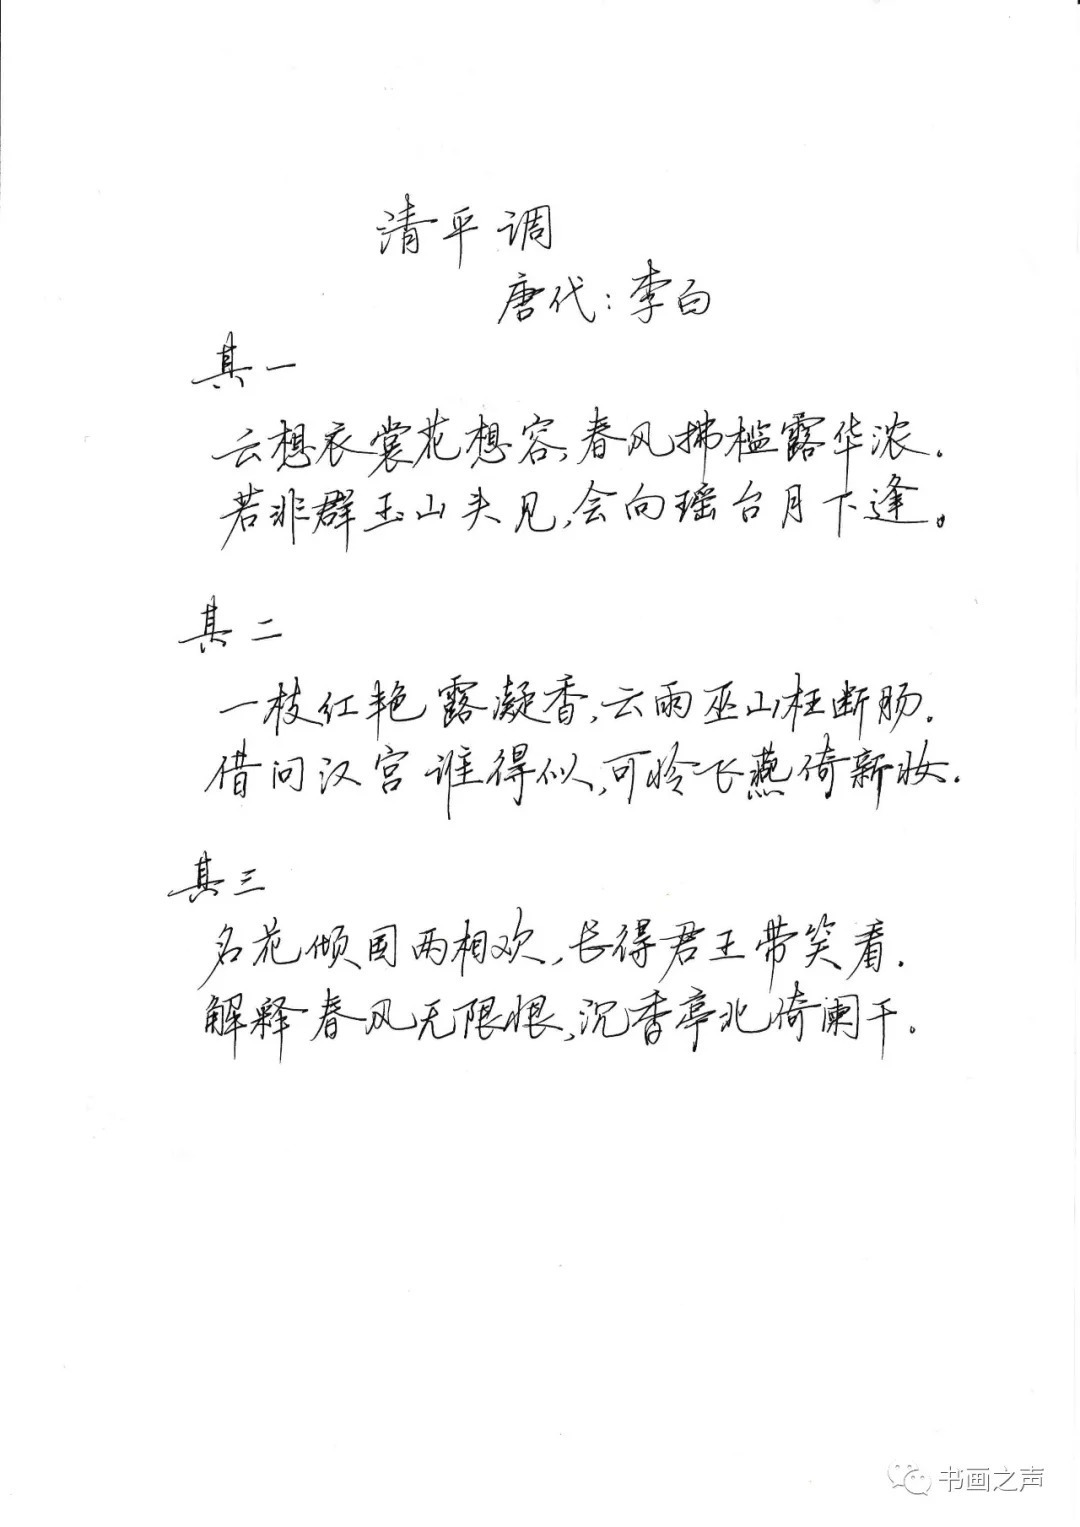 清平调
唐代：李白
其一
云想衣裳花想容，春风拂槛露华浓．
若非群玉山头见，会向瑶台月下逢。
其二
一枝红艳露凝香，云雨巫山枉断肠．
借问汉宫谁得似，可怜飞燕倚新妆．
其三
名花倾国两相欢，长得君王带笑看．
解释春风无限恨，沉香亭北倚阑干．
书画之声